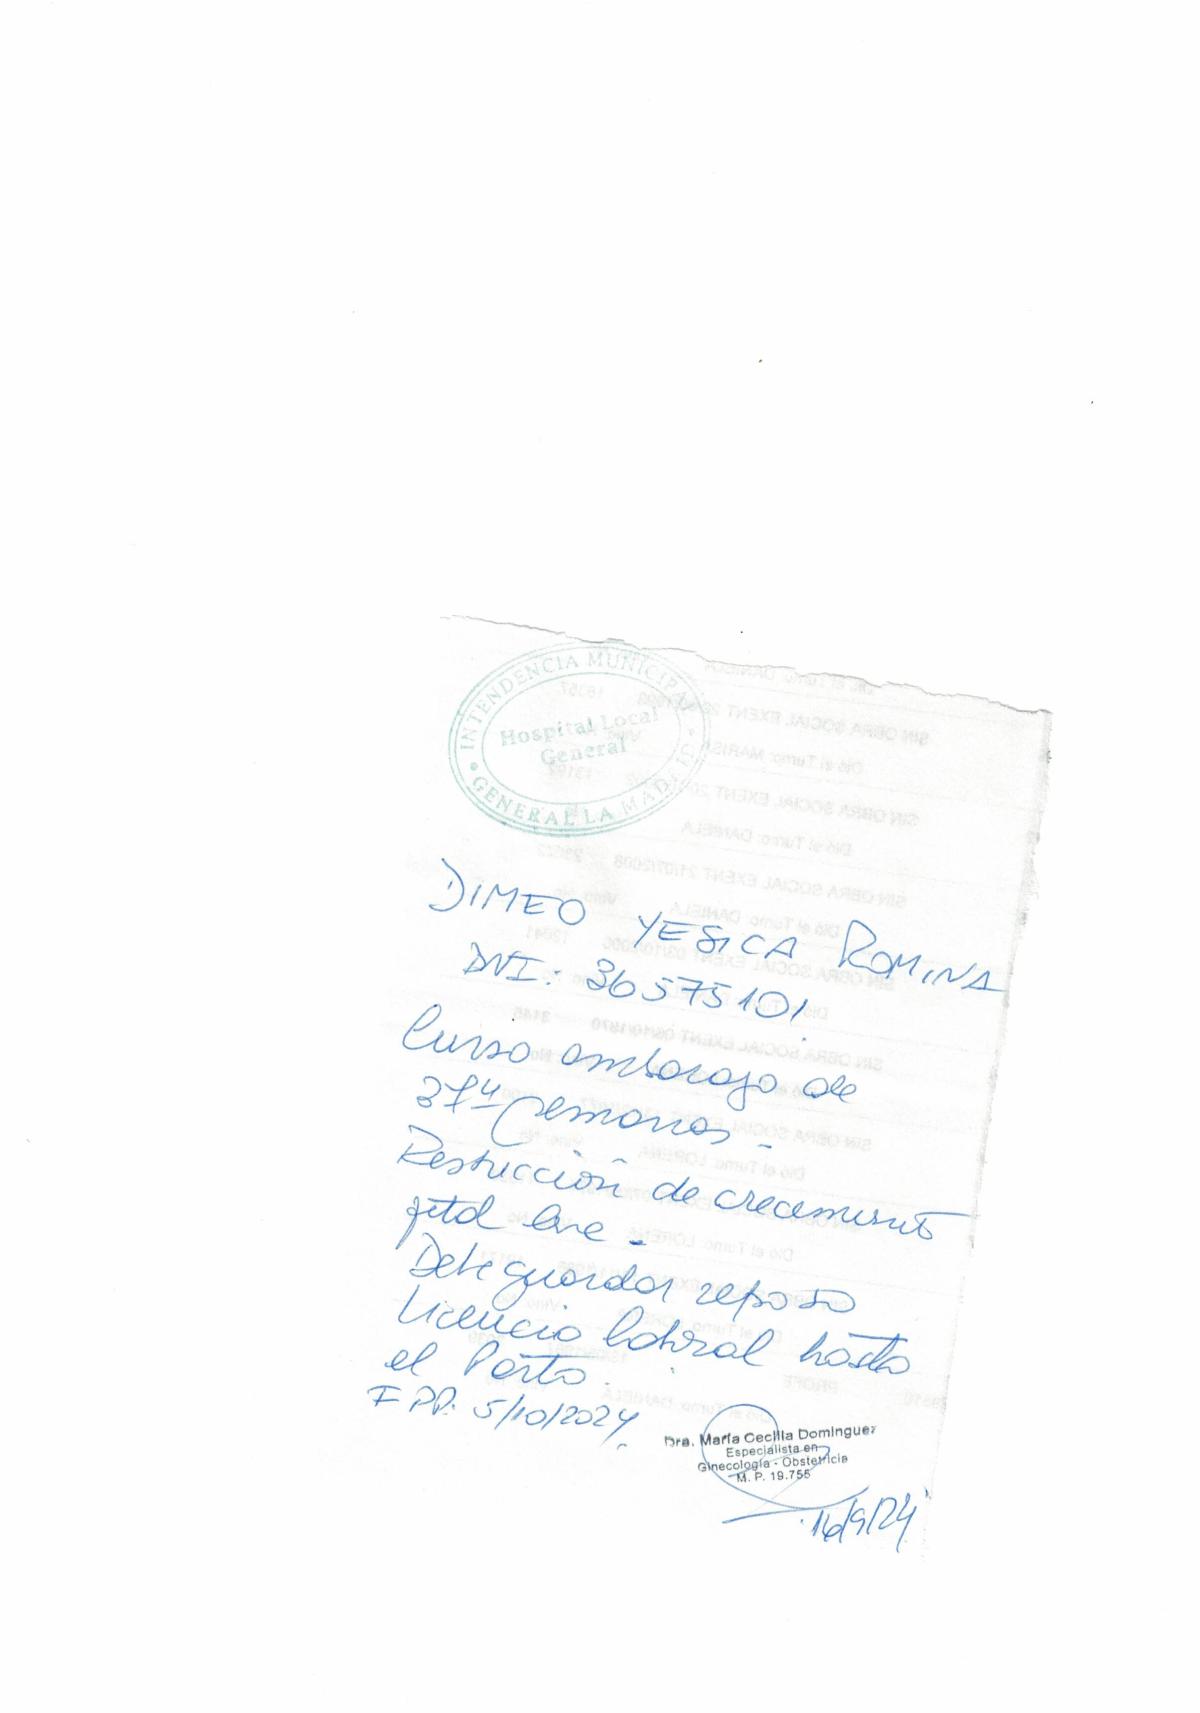 INTENDENCIA MUNICIPAL
Hospital Local
General
GENERAL LA MADRID
DIMEO YESICA ROMINA
DNI: 36575101.
Curso embarazo de
37⁴ semanas.-
Restricción de crecimiento
fetal leve -
Debe guardar reposo
Licencia laboral hasta
el Parto.
FPP: 5/10/2024.
Dra. María Cecilia Dominguez
Especialista en
Ginecología - Obstetricia
M. P. 19.755
16/9/24